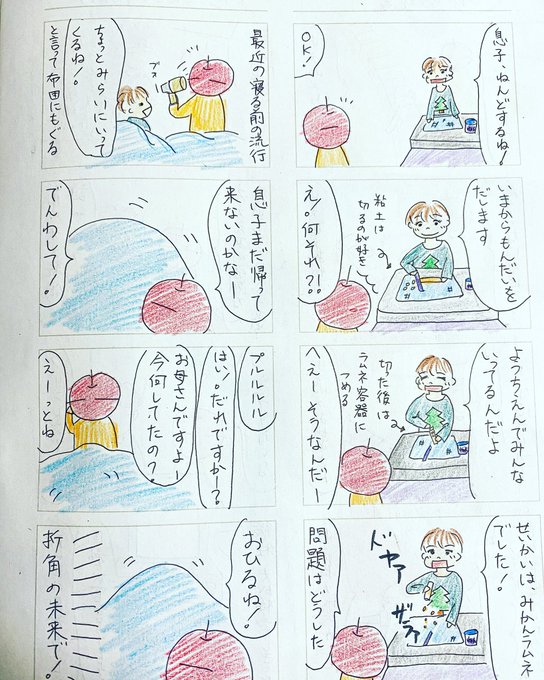 息子、ねんどするね！
OK！
いまからもんだいを
だします
粘土は
切るのが好き
え！何それ？！
ようちえんでみんな
いってるんだよ
切った後は
ラムネ容器に
つめる
へえー そうなんだー
せいかいは、みかんラムネ
でした！
ドヤァ
ザラァ
問題はどうした
最近の寝る前の流行
ブォ
ちょっとみらいにいって
くるね！
と言って布団にもぐる
息子まだ帰って
来ないのかなー
でんわして！
プルルルル
はい！だれですか？
お母さんですよー
今何してたの？
えーっとね
おひるね！
折角の未来で！